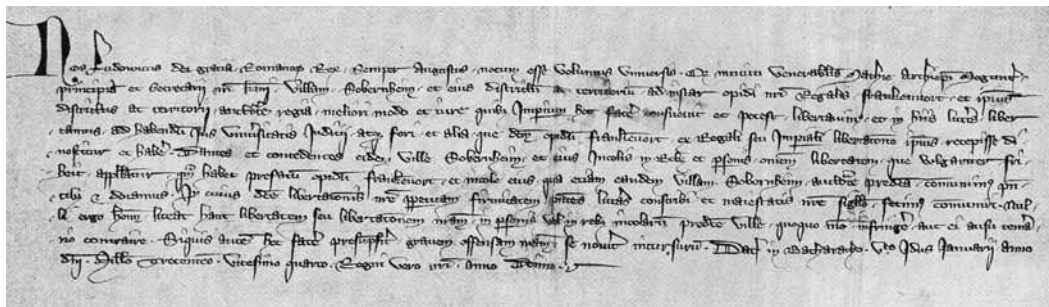 Nos Ludowicus dei gratia Romanoꝝ Rex semper augustus notum esse volumus universis. Qd intuitu venerabilis Mathie archiepi Mogunt̄
principis et secretarii nr̄i kmi, villam Sobernheim et eius districtū ac territoriū ad instar opidi nr̄i Regalis Frankenvort et ipius
districtus ac territorii, auctꝭte regia meliori modo et iure quibꝫ Imperium hoc facͤ consuevit et potest, liberavim et in hiis lrīs liber
tamus, ad habendū Jus universitatis Judicii atqꝫ fori et alia que dcm̄ opidū Frankenvort ex Regali seu Imperiali libertatione ipius recepisse di
noscitur et habͤ. Dantes et concedentes eidem ville Sobernheim et eius Incolis in Rebꝫ et psonis omnem libertatem, que volgariter fri
heit appllatur qm̄ habet prefatū opidū Frankenvort et incole eius, qua etiam eandem villam Sobernheim auctꝭte predcā comunimus pn̄
tibꝫ et donamus. In cuius dcē libertationis nr̄e ppetuam firmitatem pn̄tes lrās conscribi et maiestatis nr̄e sigillo fecimus comuniri. Nul
li ergo hoīm liceat hanc libertatem seu libertationem nr̄am in psonis vel in rebꝫ incolarū predcē ville quoquo mo infringͤ, aut ei ausu temͣa
rio contraire. Siquis autē hoc facͤ presūpsͥit gravem offensam nr̄am se novͥit incursurū. Dat̄ in Bacharacho. vto Idus Januarii anno
dn̄i Millo Trecenteo. Vicesimo quarto, Regni vero nr̄i anno Decimo.